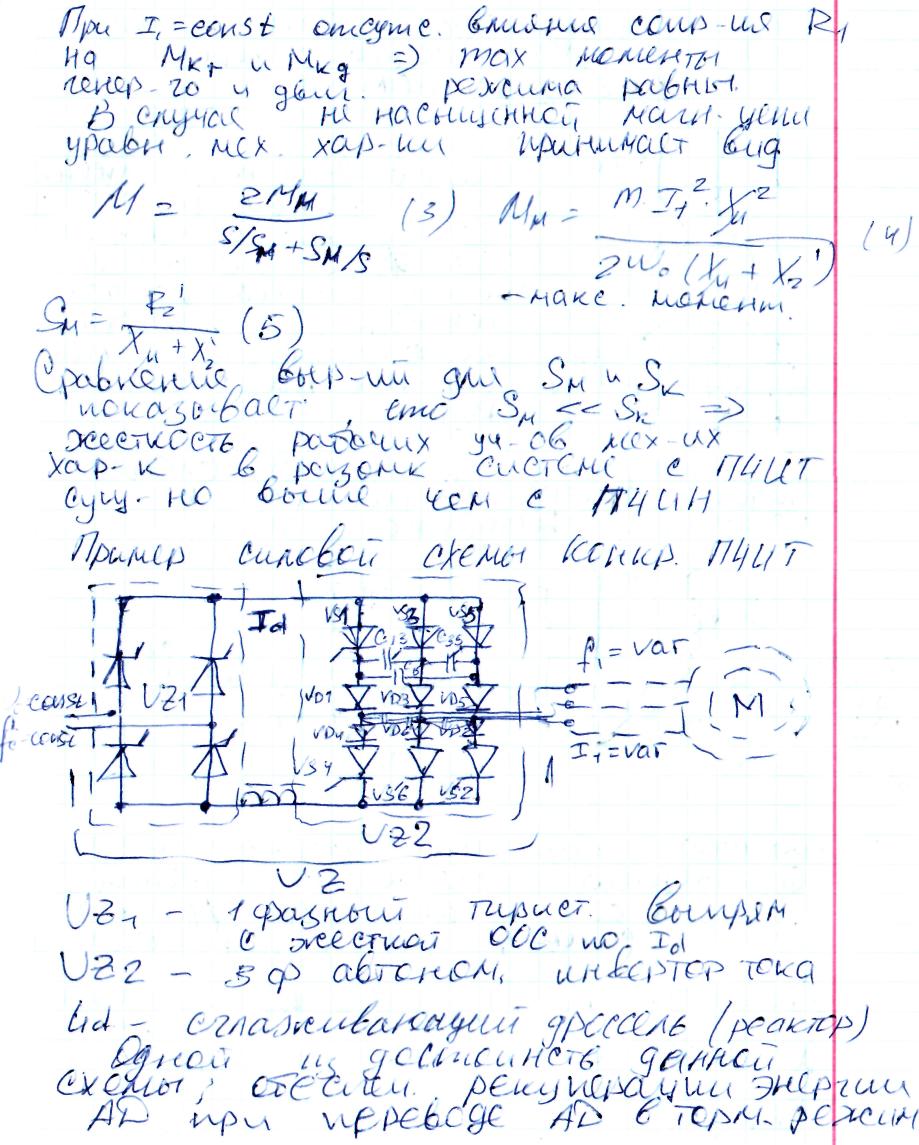 При I₁=const отсутс. влияния сопр-ия R₁
на Mкг и Mкд ⇒ max моменты
генер-го и двиг. режима равны.
В случае не насыщенной магн. цепи
уравн. мех. хар-ии принимает вид
M = 2Mм / (S/Sм + Sм/S) (3) Mм = m·I₁²·Xμ² / 2ω₀(Xμ + X₂') (4)
- макс. момент.
Sм = R₂' / (Xμ + X₂') (5)
Сравнение выр-ий для Sм и Sк
показывает, что Sм << Sк ⇒
жесткость рабочих уч-ов мех-их
хар-к в разомк системе с ПЧИТ
сущ-но выше чем с ПЧИН
Пример силовой схемы конкр. ПЧИТ
Id VS1 VS3 VS5
C13 C35
f₁=var
const UZ1 VD1 VD3 VD5 M
f₀-const VD4 VD6 VD2
I₁=var
VS4 VS6 VS2
UZ2
UZ
UZ₁ - 1 фазный тирист. выпрям.
с жесткой ООС по Id
UZ2 - 3 ф автоном. инвертор тока
Ld - сглаживающий дроссель (реактор)
Одной из достоинств данной
схемы, рекуперации энергии
АД при переводе АД в торм. режим